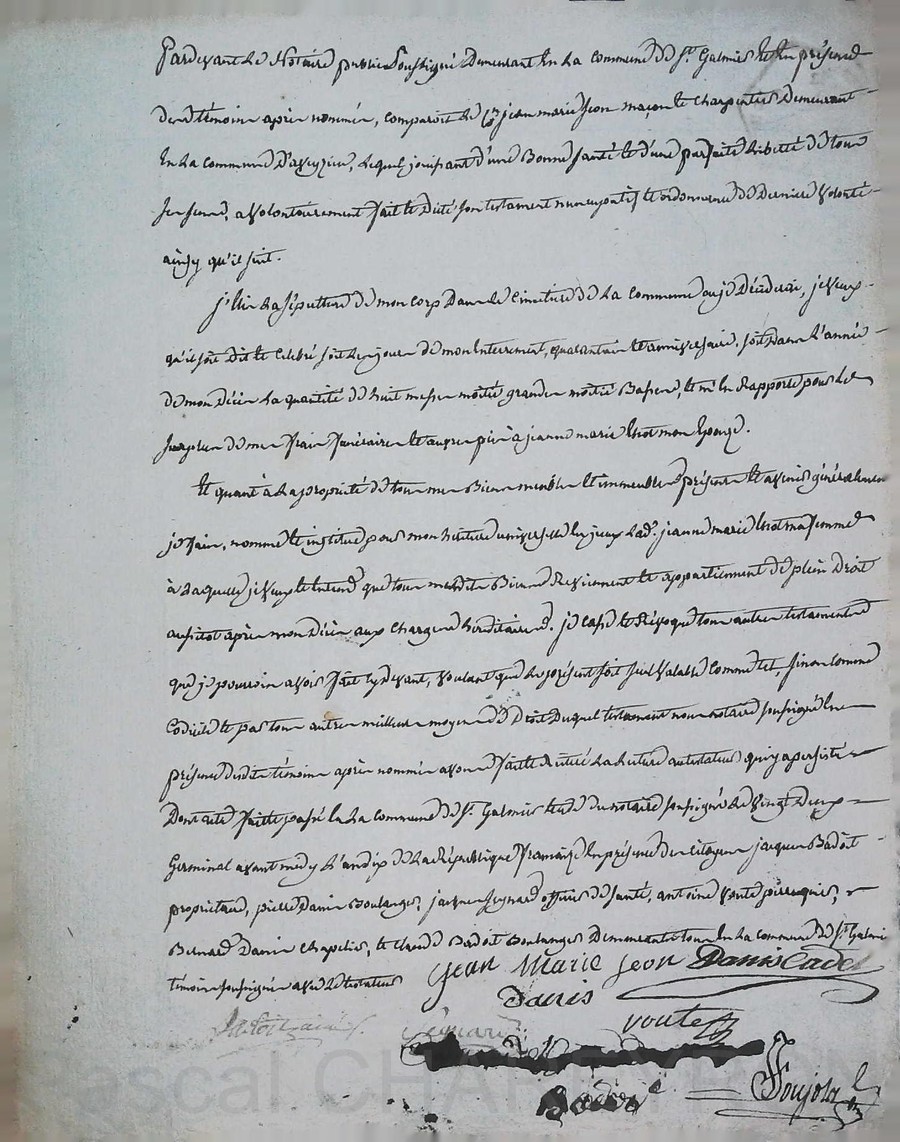 Pardevant Le Notaire public Soussigné Demeurant En La commune De St. Galmier Et En présence
des témoins après nommés, comparoit Le Cen jean marie jeon maçon Et Charpentier Demeurant
En La commune D'aveyzieu, Lequel jouissant d'une Bonne santé Et d'une parfaite Liberté De tous
ses sens, a volontairement fait Et Dicté son testament nuncupatif Et ordonnance De Derniere volonté
ainsy qu'il suit.
j'Elis La sépulture De mon corps Dans Le Cimetiere De La commune ou je Décederai, je veux
qu'il soit Dit Et Celebré soit Les jours De mon Enterrement, quarantain Et anniversaire, soit Dans L'année
De mon Décès La quantité De huit messes moitié grandes moitié Basses, Et m'En Rapporte pour Le
surplus De mes frais funéraires Et augres pies à jeanne marie mon Epouse.
Et quant à La propriété De tous mes Biens meubles Et immeubles présents Et avenir généralement
je fais, nomme Et institue pour mon héritiere universelle Lad. jeanne marie ma femme
à Laquelle je veux Et Entend que tous mesdits Biens Reviennent Et appartiennent De plein Droit
aussitot après mon Décès aux Charges héréditaires. je casse Et Révoque tous autres testaments
que je pourrois avoir fait cy devant, voulant que Le présent soit seul valable comme tel, sinon comme
Codicile Et par tous autres meilleurs moyens De Droit Duquel testament nous notaire soussigné En
présence desdits témoins après nommés avons fait Et Réiteré La Lecture au testateur qui y a persisté
Dont acte fait Et passé En La commune De St. Galmier Etude du notaire soussigné Le vingt Deux
Germinal avant medy L'an dix De La République française En présence des Citoyens jacques Badoit
propriétaire, pierre Danis Boulanger, jacques Peynard officier De santé, antoine voute perruquier,
Bernard Danis Chapelier, Et Claude Badoit Boulanger Demeurants tous En La commune De St. Galmier
témoins soussignés avec Le testateur
Jean Marie Jeon Danis Cadet
Danis
voute
Badoit
Poujola
Pascal CHA